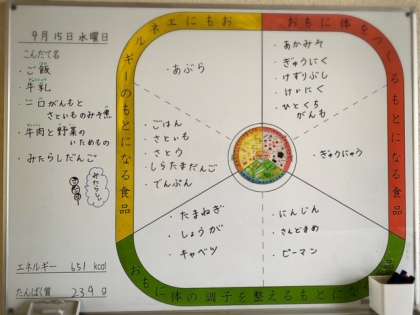 9月15日水曜日
こんだて名
ご飯
牛乳
一口がんもと
さといものみそ煮
牛肉と野菜の
いためもの
・みたらしだんご
エネルギー 651 kcal
たんぱく質 23.9 g
おもにエネルギーのもとになる食品
・あぶら
・ごはん
・さといも
・さとう
・しらたまだんご
・でんぷん
おもに体をつくるもとになる食品
・あかみそ
・ぎゅうにく
・けずりぶし
・けいにく
・ひとくち
がんも
・ぎゅうにゅう
・たまねぎ
・しょうが
・キャベツ
・にんじん
・さんどまめ
・ピーマン
おもに体の調子を整えるもとになる